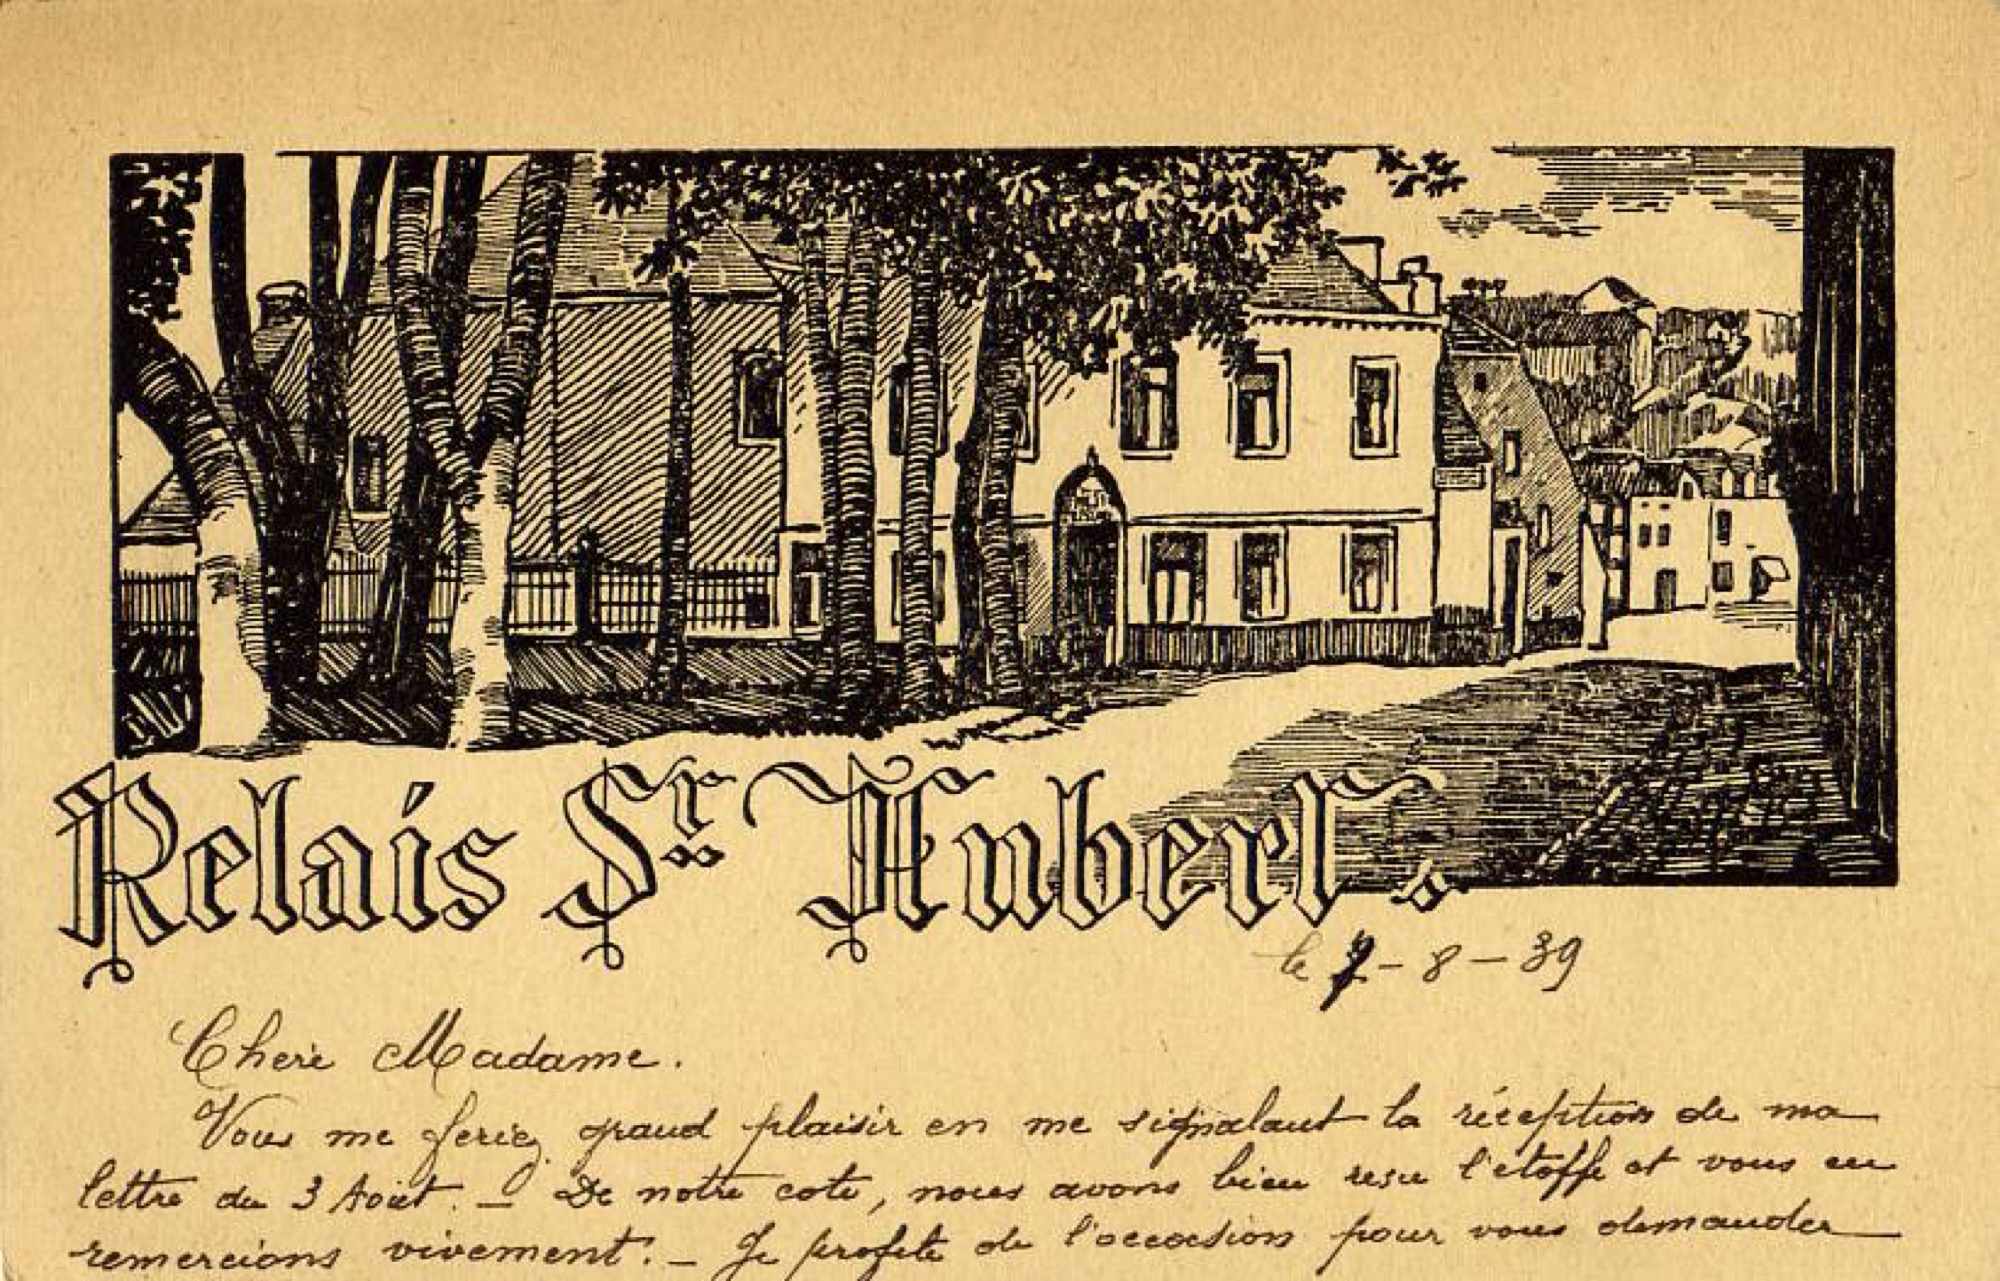 Relais St Hubert.
le 7-8-39
Chere Madame.
Vous me feriez grand plaisir en me signalant la réception de ma
lettre du 3 Août. — De notre coté, nous avons bien reçu l'étoffe et vous en
remercions vivement. — Je profite de l'occasion pour vous demander